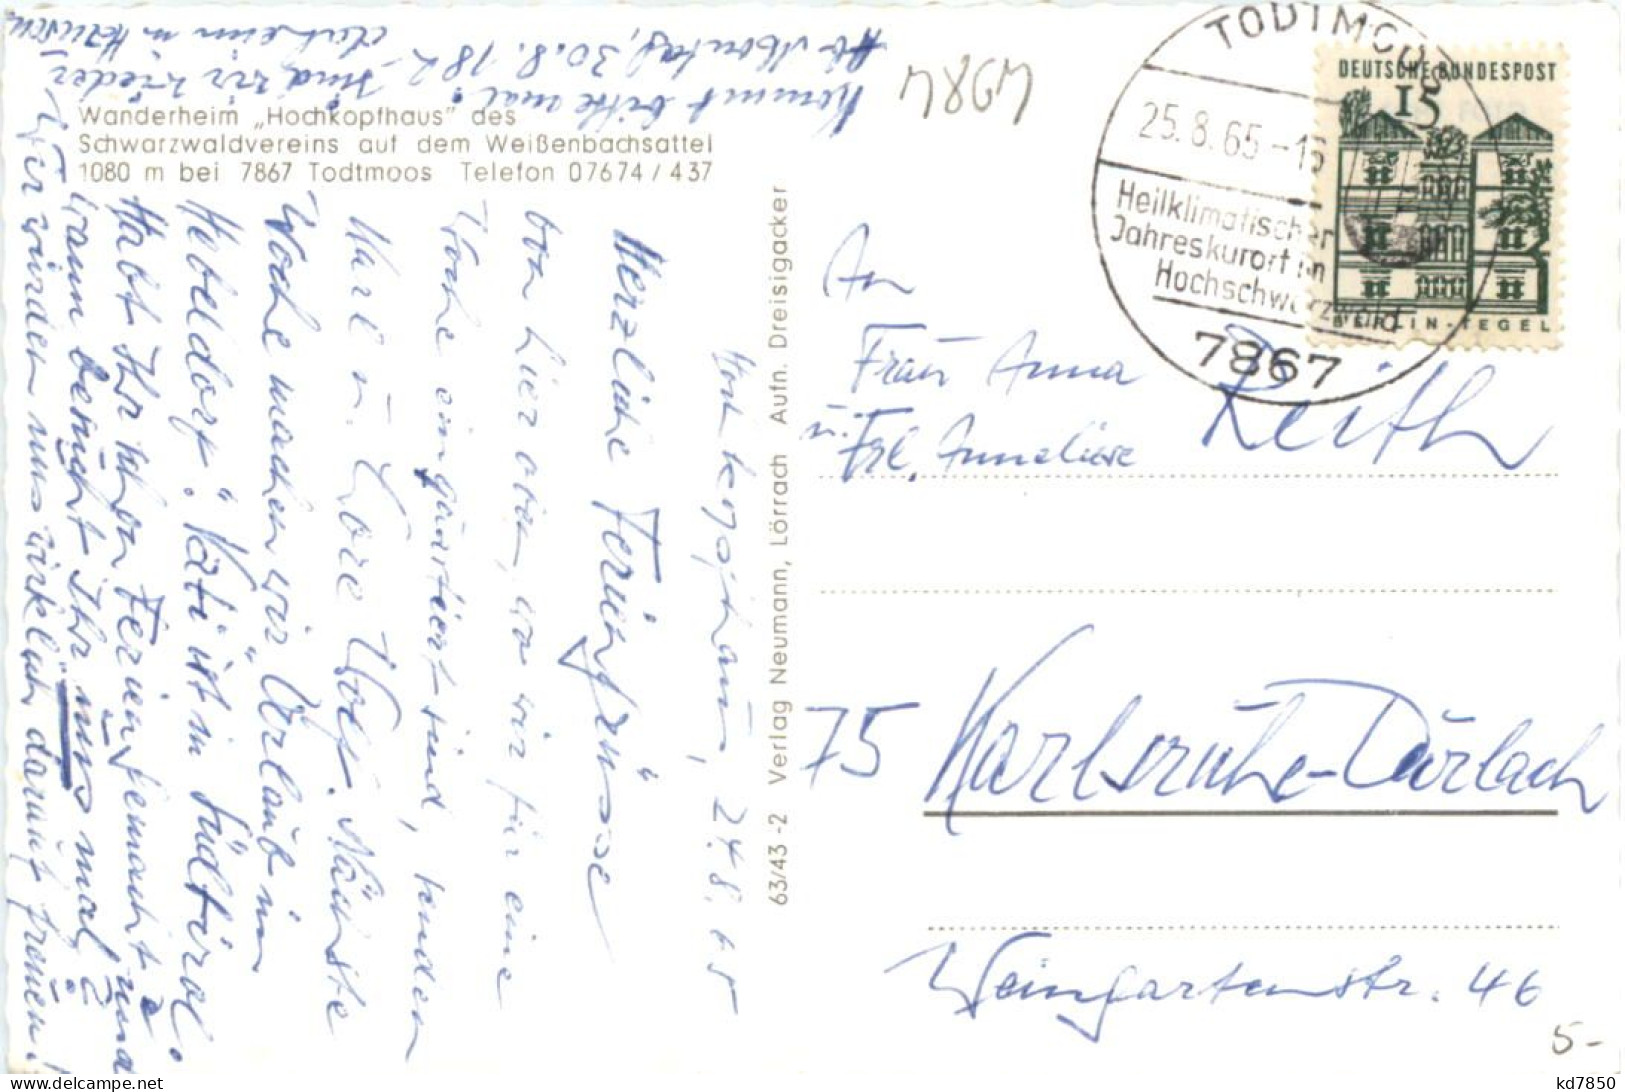 Wanderheim „Hochkopfhaus" des
Schwarzwaldvereins auf dem Weißenbachsattel
1080 m bei 7867 Todtmoos Telefon 07674/437
Hochkopfhaus, 24.8.65
Herzliche Feriengrüsse
von hier oben, wo wir für eine
Woche einquartiert sind, senden
Karl u. Lore Wolf. Nächste
Woche machen wir „Urlaub im
Hebeldorf". Kati ist in Südtirol.
Habt Ihr schon Ferien gemacht und
wann bringt Ihr uns mal?
Wir würden uns wirklich darauf freuen!
Ab Montag, 30.8.
Kommt bitte mal!
sind wir wieder
daheim in
63/43 -2 Verlag Neumann, Lörrach Aufn. Dreisigacker
4984
TODTMOOS
25.8.65-15
Heilklimatischer
Jahreskurort im
Hochschwarzwald
7867
DEUTSCHE BUNDESPOST
15
BERLIN-TEGEL
An
Frau Anna
u. Frl. Anneliese Reith
75 Karlsruhe-Durlach
Weingartenstr. 46
5-
kd7850